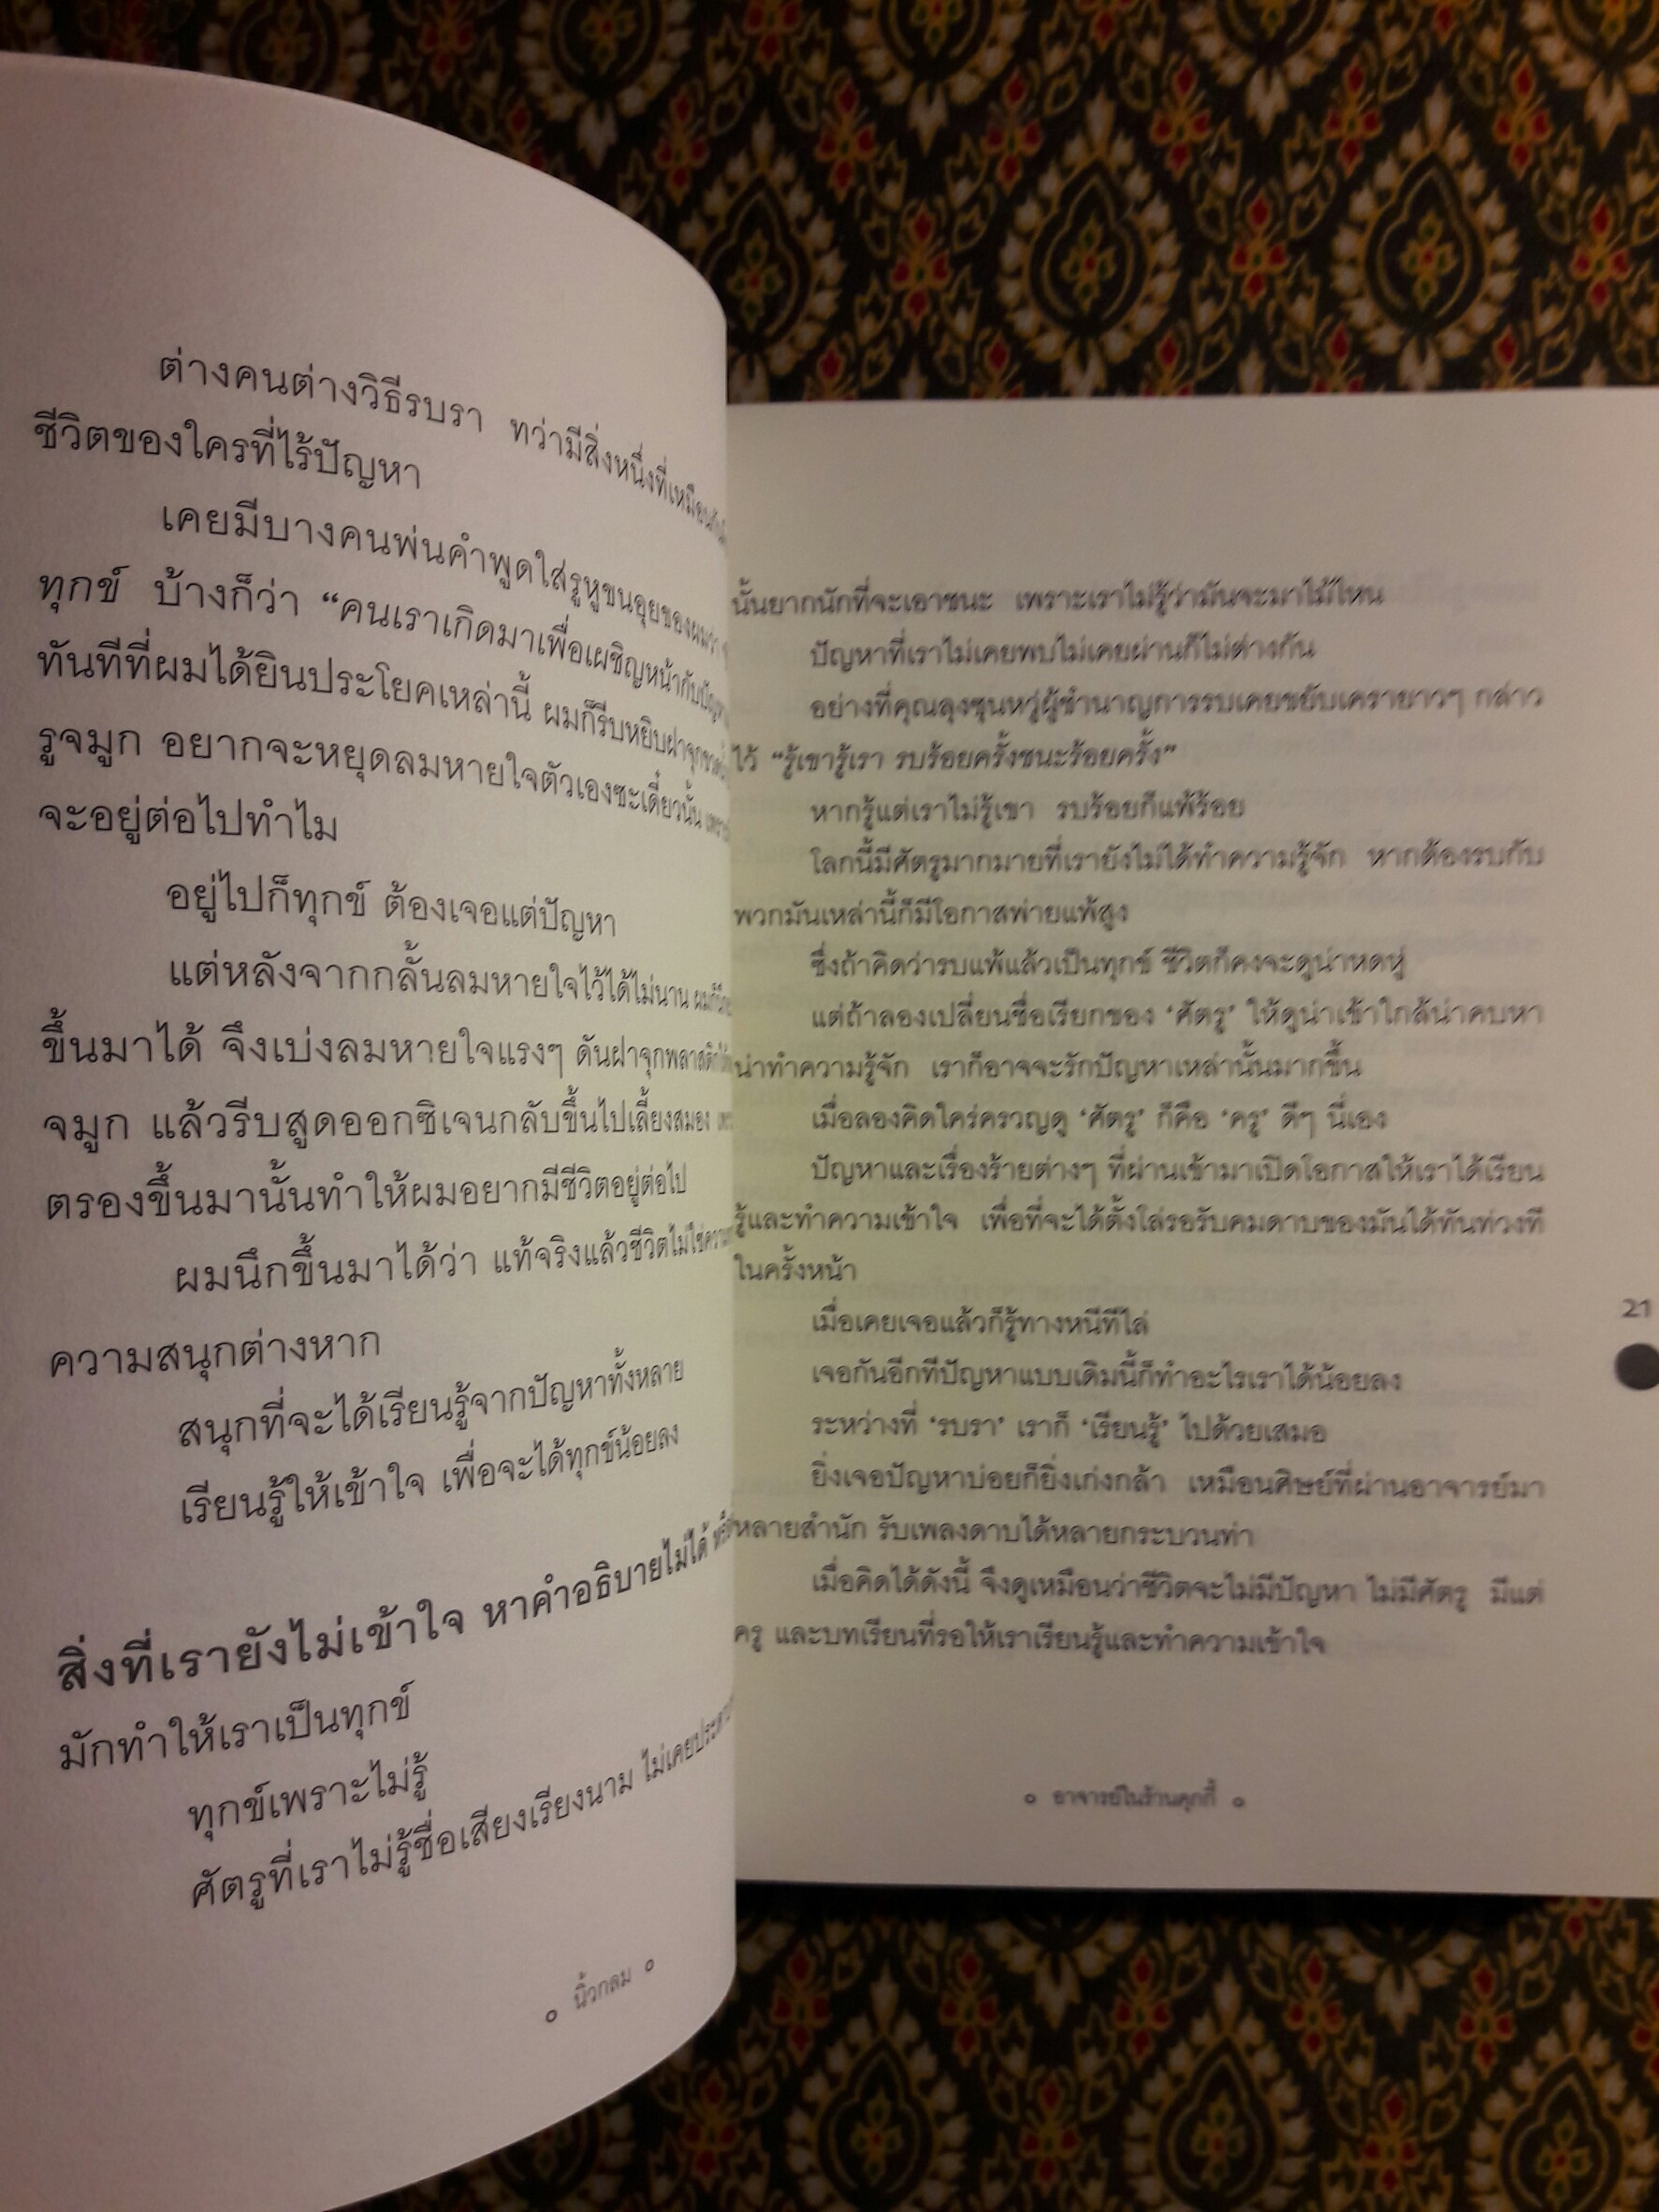 ต่างคนต่างวิธีรบรา ทว่ามีสิ่งหนึ่งที่เหมือนกัน
ชีวิตของใครที่ไร้ปัญหา
เคยมีบางคนพ่นคำพูดใส่รูหูขนอุยของผมว่า
ทุกข์ บ้างก็ว่า “คนเราเกิดมาเพื่อเผชิญหน้ากับปัญหา
ทันทีที่ผมได้ยินประโยคเหล่านี้ ผมก็รีบหยิบฝาจุกขวด
รูจมูก อยากจะหยุดลมหายใจตัวเองซะเดี๋ยวนั้น เพราะ
จะอยู่ต่อไปทำไม
อยู่ไปก็ทุกข์ ต้องเจอแต่ปัญหา
แต่หลังจากกลั้นลมหายใจไว้ได้ไม่นาน ผมก็
ขึ้นมาได้ จึงเบ่งลมหายใจแรงๆ ดันฝาจุกพลาสติก
จมูก แล้วรีบสูดออกซิเจนกลับขึ้นไปเลี้ยงสมอง
ตรองขึ้นมานั้นทำให้ผมอยากมีชีวิตอยู่ต่อไป
ผมนึกขึ้นมาได้ว่า แท้จริงแล้วชีวิตไม่ใช่
ความสนุกต่างหาก
สนุกที่จะได้เรียนรู้จากปัญหาทั้งหลาย
เรียนรู้ให้เข้าใจ เพื่อจะได้ทุกข์น้อยลง
สิ่งที่เรายังไม่เข้าใจ หาคำอธิบายไม่ได้
มักทำให้เราเป็นทุกข์
ทุกข์เพราะไม่รู้
ศัตรูที่เราไม่รู้ชื่อเสียงเรียงนาม ไม่เคยประ
นิ้วกลม
นั้นยากนักที่จะเอาชนะ เพราะเราไม่รู้ว่ามันจะมาไม้ไหน
ปัญหาที่เราไม่เคยพบไม่เคยผ่านก็ไม่ต่างกัน
อย่างที่คุณลุงซุนหวู่ผู้ชำนาญการรบเคยขยับเครายาวๆ กล่าว
ไว้ “รู้เขารู้เรา รบร้อยครั้งชนะร้อยครั้ง”
หากรู้แต่เราไม่รู้เขา รบร้อยก็แพ้ร้อย
โลกนี้มีศัตรูมากมายที่เรายังไม่ได้ทำความรู้จัก หากต้องรบกับ
พวกมันเหล่านี้ก็มีโอกาสพ่ายแพ้สูง
ซึ่งถ้าคิดว่ารบแพ้แล้วเป็นทุกข์ ชีวิตก็คงจะดูน่าหดหู่
แต่ถ้าลองเปลี่ยนชื่อเรียกของ ‘ศัตรู’ ให้ดูน่าเข้าใกล้น่าคบหา
น่าทำความรู้จัก เราก็อาจจะรักปัญหาเหล่านั้นมากขึ้น
เมื่อลองคิดใคร่ครวญดู ‘ศัตรู’ ก็คือ ‘ครู’ ดีๆ นี่เอง
ปัญหาและเรื่องร้ายต่างๆ ที่ผ่านเข้ามาเปิดโอกาสให้เราได้เรียน
รู้และทำความเข้าใจ เพื่อที่จะได้ตั้งใล่รอรับคมดาบของมันได้ทันท่วงที
ในครั้งหน้า
เมื่อเคยเจอแล้วก็รู้ทางหนีทีไล่
เจอกันอีกทีปัญหาแบบเดิมนี้ก็ทำอะไรเราได้น้อยลง
ระหว่างที่ ‘รบรา’ เราก็ ‘เรียนรู้’ ไปด้วยเสมอ
ยิ่งเจอปัญหาบ่อยก็ยิ่งเก่งกล้า เหมือนศิษย์ที่ผ่านอาจารย์มา
หลายสำนัก รับเพลงดาบได้หลายกระบวนท่า
เมื่อคิดได้ดังนี้ จึงดูเหมือนว่าชีวิตจะไม่มีปัญหา ไม่มีศัตรู มีแต่
ครู และบทเรียนที่รอให้เราเรียนรู้และทำความเข้าใจ
21
อาจารย์ในร้านคุกกี้